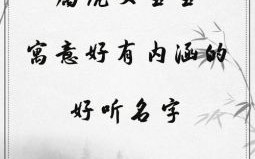 寓意好有内涵的
好听名字